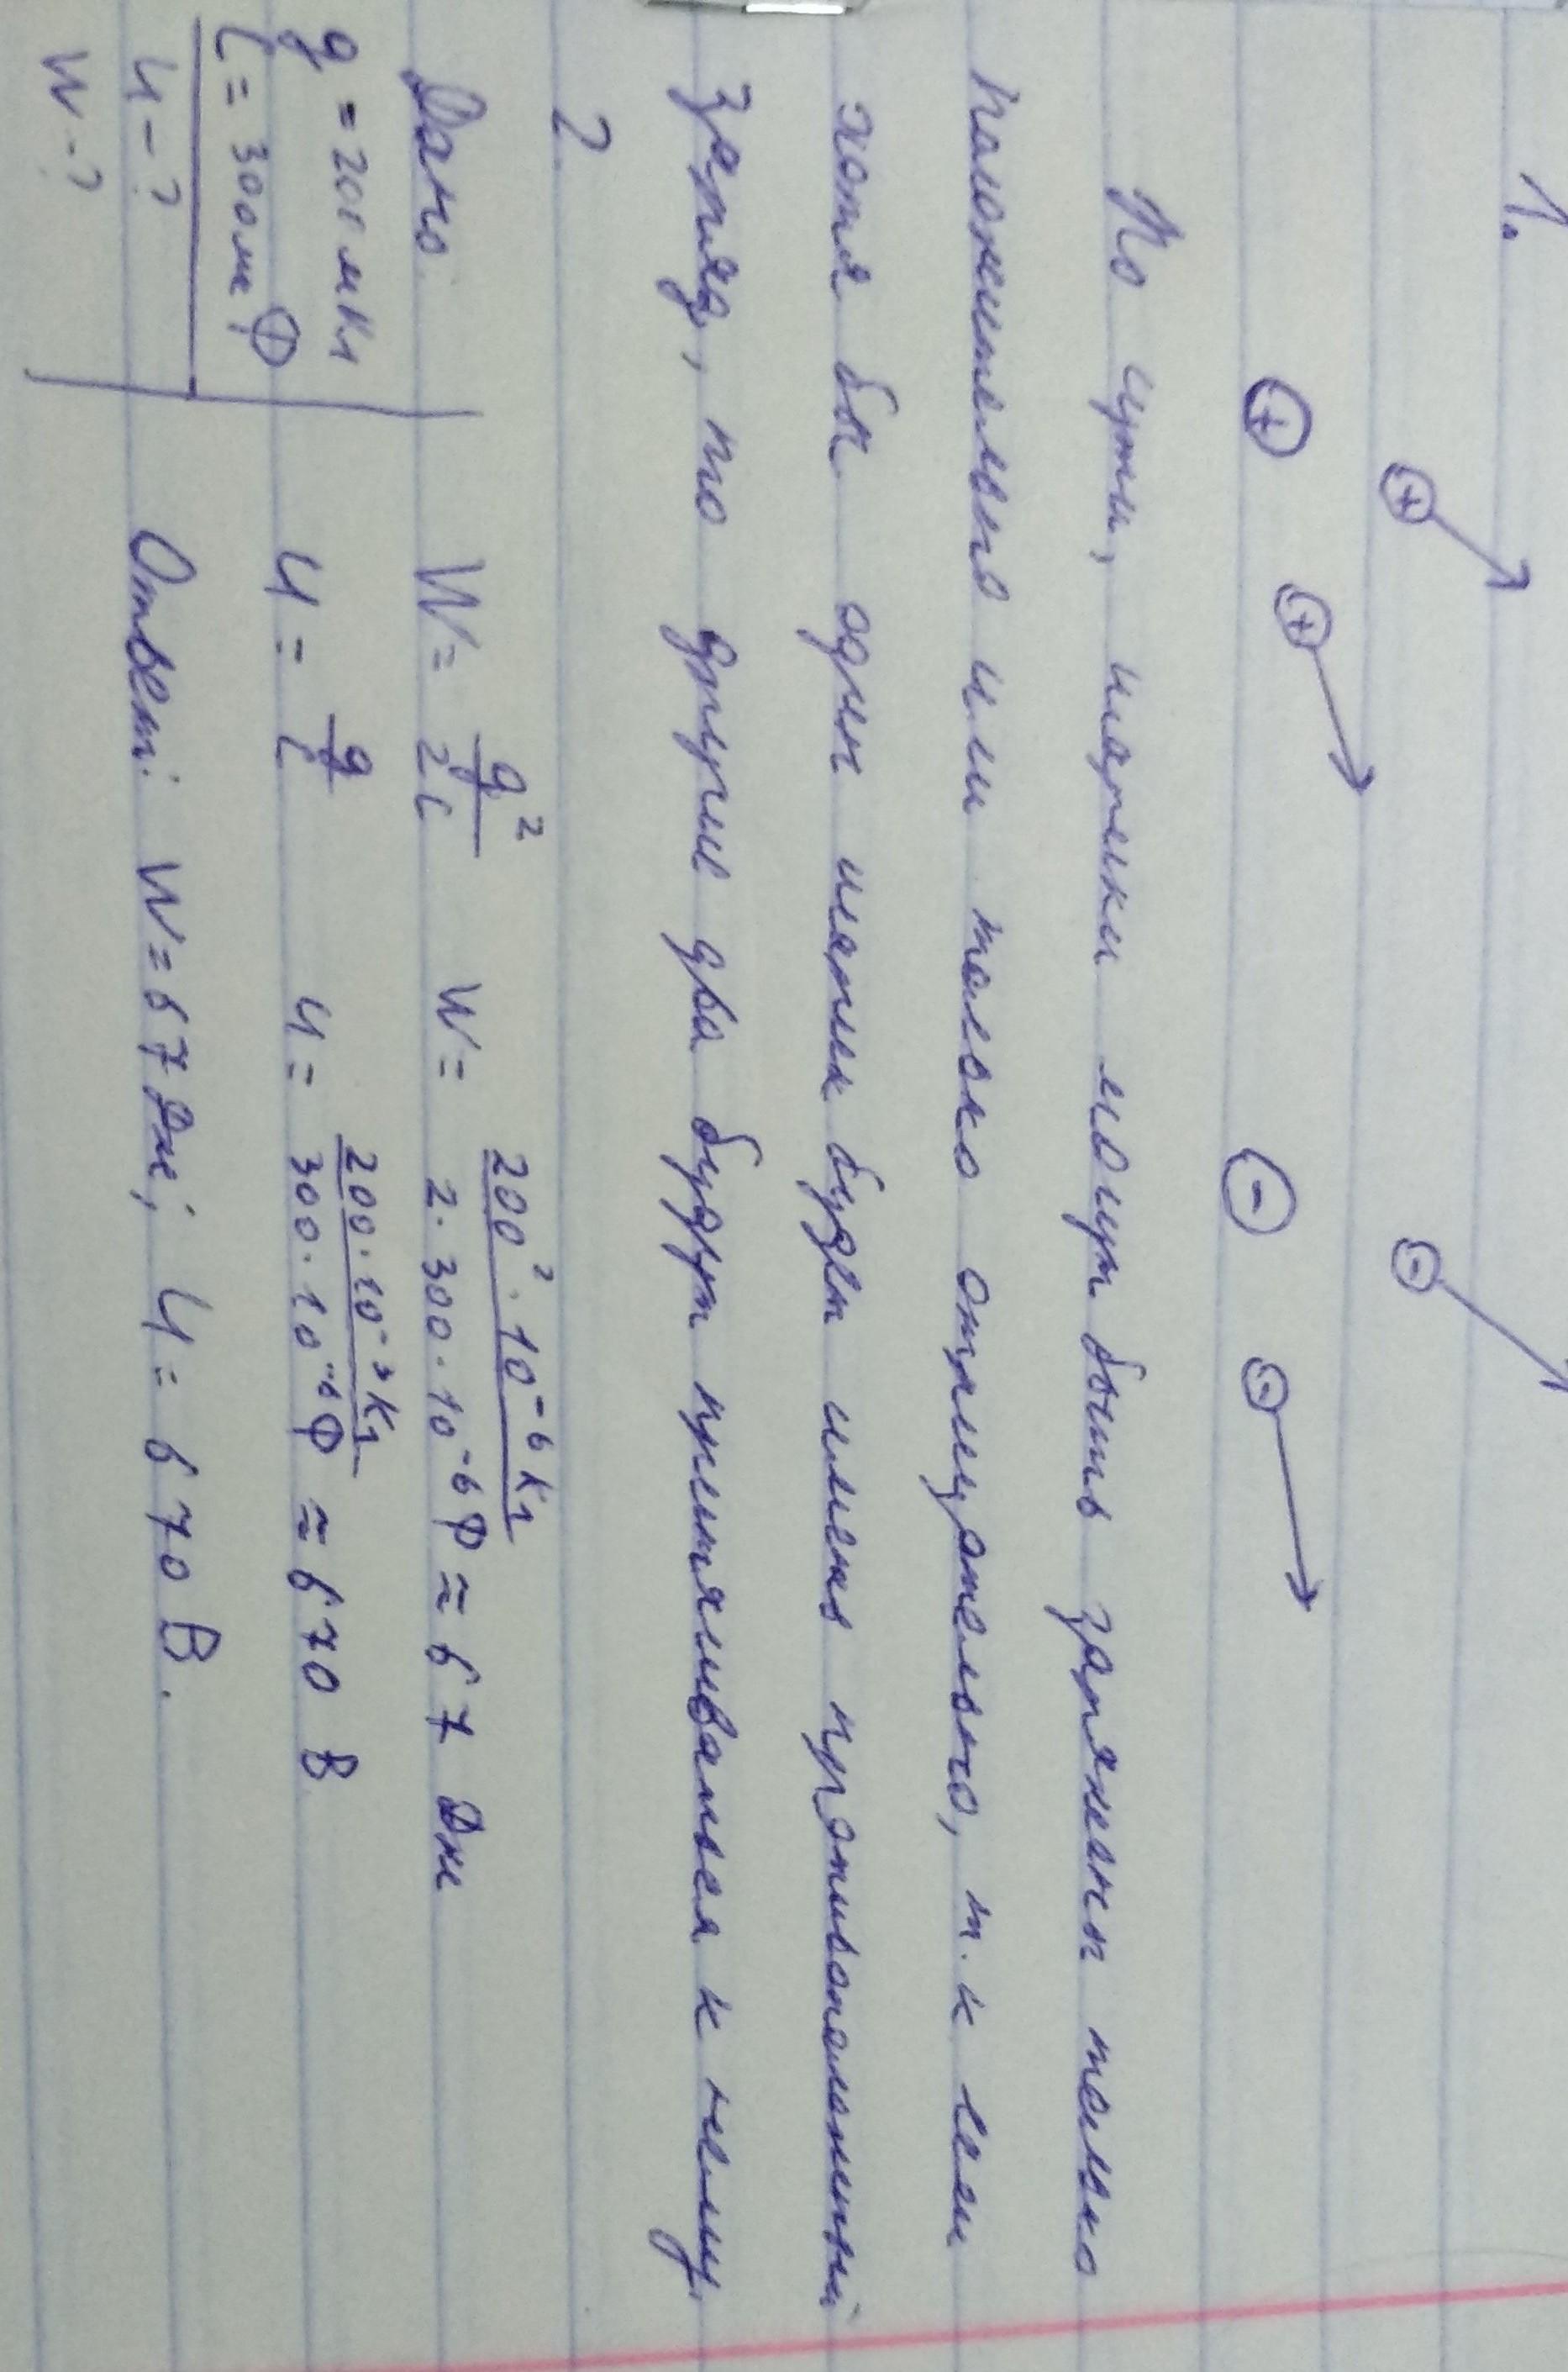 1.
⊕ ⊕ ⊕ ⊖ ⊖ ⊖
По сути, шарики могут быть заряжены только
положительно или только отрицательно, т.к если
хотя бы один шарик будет иметь противоположный
заряд, то другие два будут притягиваться к нему.
2.
Дано: W = q²/2C W = 200² · 10⁻⁶ Кл / 2 · 300 · 10⁻⁶ Ф ≈ 67 Дж
q = 200 мКл
C = 300 мк Ф U = q/C U = 200 · 10⁻³ Кл / 300 · 10⁻⁶ Ф ≈ 670 В
U - ?
W - ? Ответ: W = 67 Дж; U = 670 В.